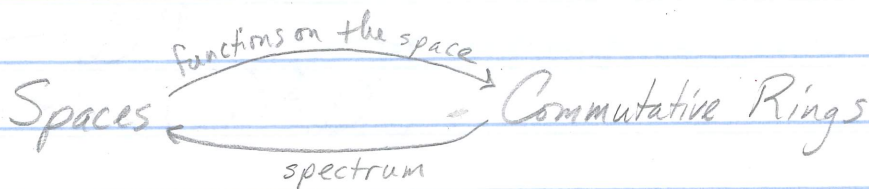 functions on the space
Spaces
Commutative Rings
spectrum